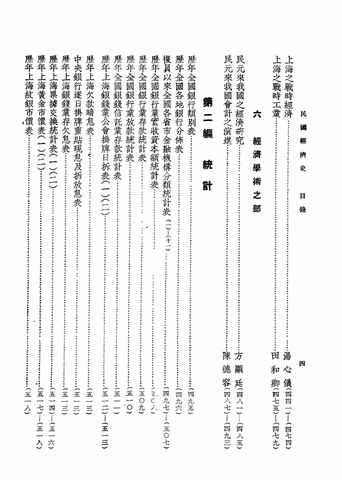 民國經濟史 目錄 四
上海之戰時經濟……湯心儀(四四一)—(四七四)
上海之戰時工業……田和卿(四七五)—(四七九)
六 經濟學術之部
民元來我國之經濟研究……方顯廷(四八一)—(四八五)
民元來我國會計之演進……陳德容(四八七)—(四九三)
第二編 統計
歷年全國銀行類別表……(四九五)
歷年全國各地銀行分佈表……(四九六)
復員以來全國各省市金融機構分類統計表(一—十一)……(四九七)—(五〇七)
歷年全國銀行業實收資本額統計表
歷年全國銀行業存款統計表……(五〇九)
歷年全國銀行業放款統計表……(五一〇)
歷年全國銀錢信託業存款統計表……(五一一)
歷年上海銀錢業公會掛牌日拆表(一)(二)……(五一二)—(五一三)
歷年上海欠款暗息表……(五一三)
中央銀行逐日掛牌重貼現息及拆放息表……(五一三)
歷年上海銀錢業存欠息表……(五一三)
歷年上海票據交換統計表(一)(二)……(五一四)—(五一六)
歷年上海黃金市價表(一)(二)……(五一七)—(五一八)
歷年上海紋銀市價表……(五一八)